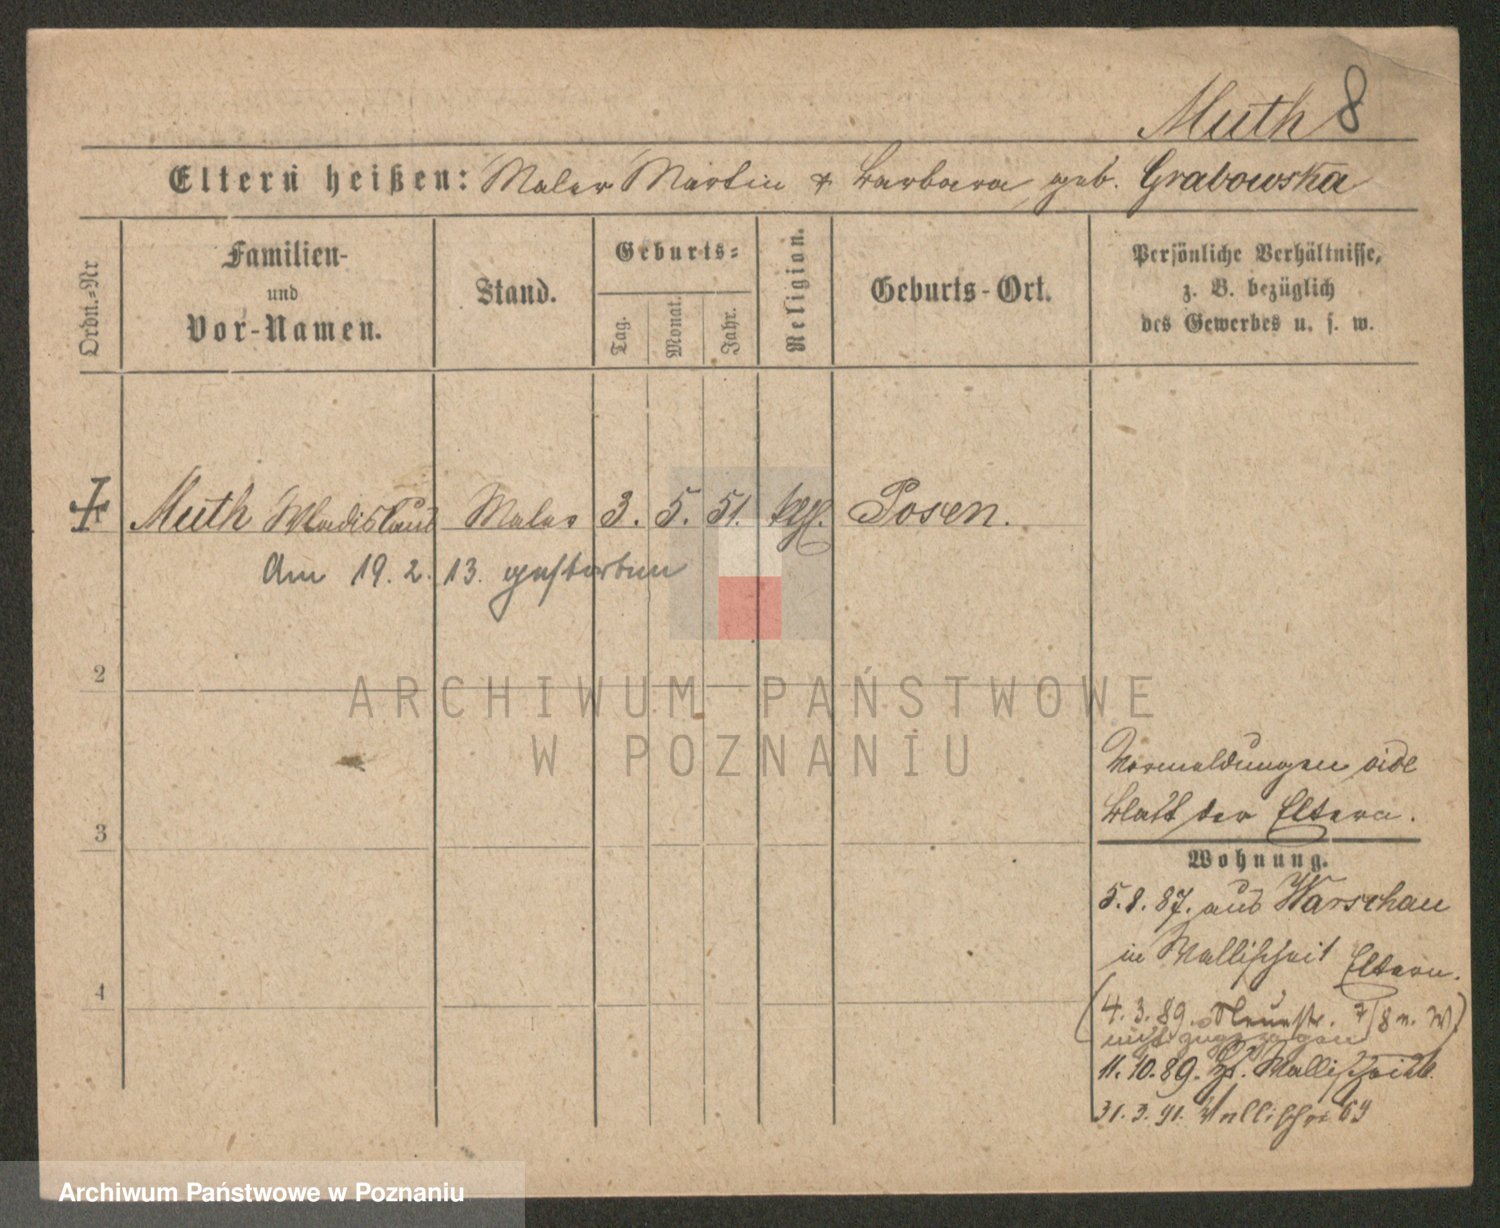 Muth 8
Eltern heißen: Maler Martin & Barbara geb. Grabowska
Ordn.=Nr
Familien-
und
Vor-Namen.
Stand.
Geburts=
Tag.
Monat.
Jahr.
Religion.
Geburts-Ort.
Persönliche Verhältnisse,
z. B. bezüglich
des Gewerbes u. s. w.
Muth Wladislaus Maler 3. 5. 51. kth. Posen.
Am 19. 2. 13. gestorben
2
ARCHIWUM PAŃSTWOWE
W POZNANIU
Vormeldungen vide
Blatt der Eltern.
3
Wohnung.
5.8.87. aus Warschau
in Wallischei Eltern.
4
(4.3.89. Neuestr. 7/8 n. W)
nicht zugezogen
11.10.89. Wallischei
31.3.91. Wallischei 69
Archiwum Państwowe w Poznaniu